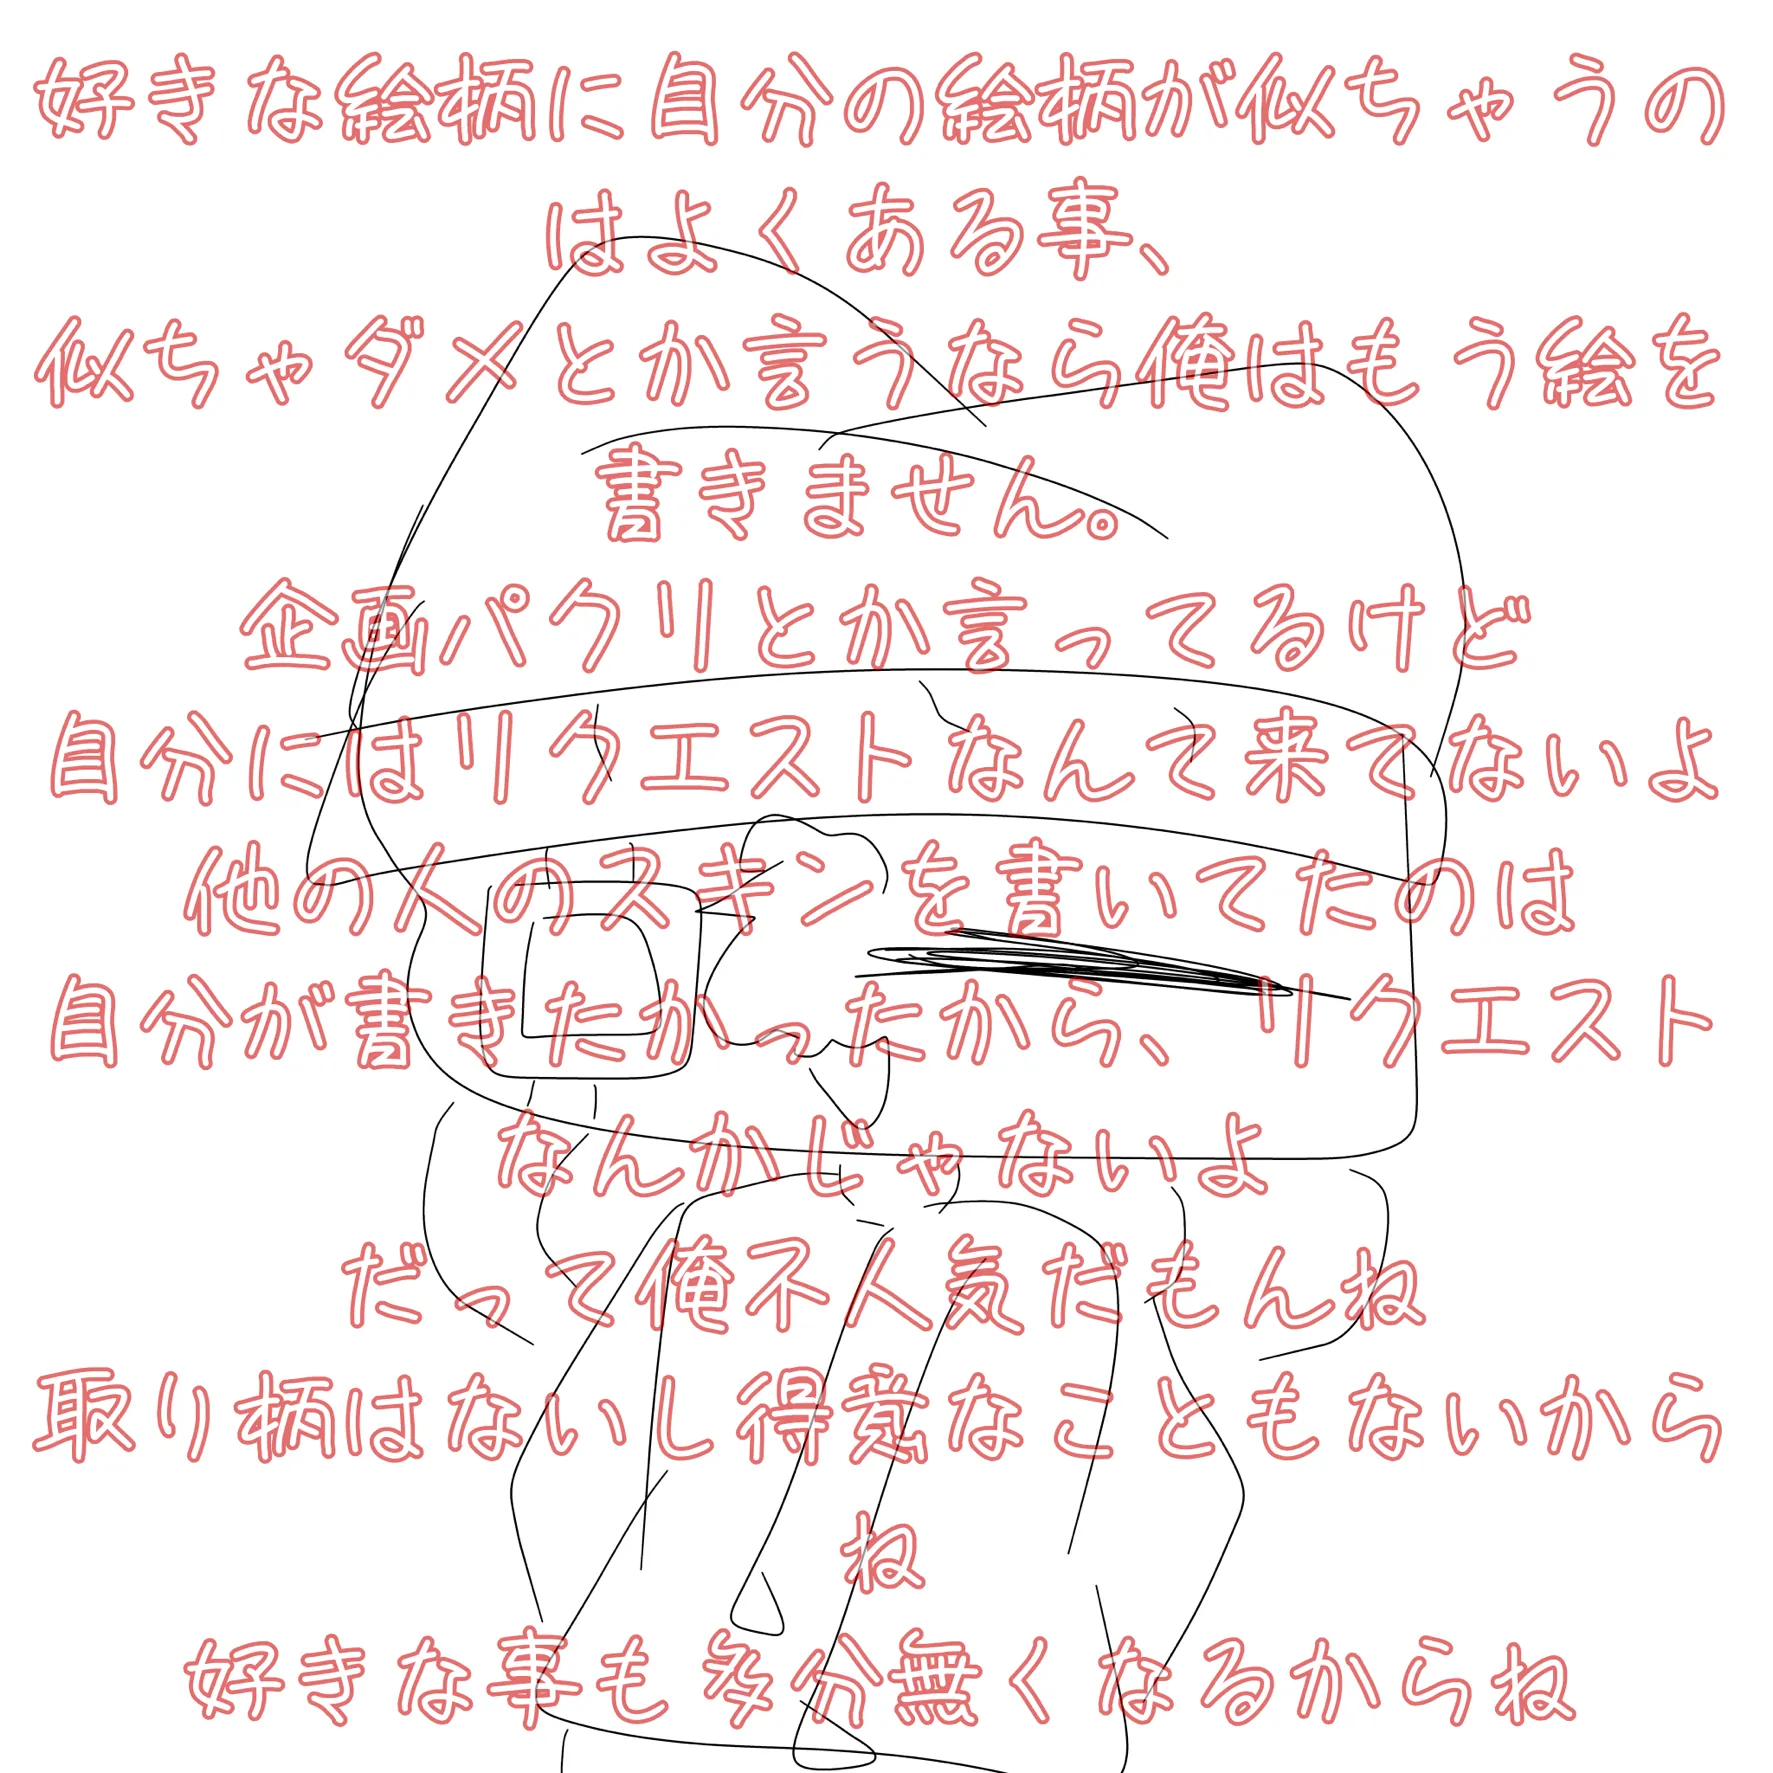 好きな絵柄に自分の絵柄が似ちゃうの
はよくある事、
似ちゃダメとか言うなら俺はもう絵を
書きません。
企画パクリとか言ってるけど
自分にはリクエストなんて来てないよ
他の人のスキンを書いてたのは
自分が書きたかったから、リクエスト
なんかじゃないよ
だって俺不人気だもんね
取り柄はないし得意なこともないから
ね
好きな事も多分無くなるからね